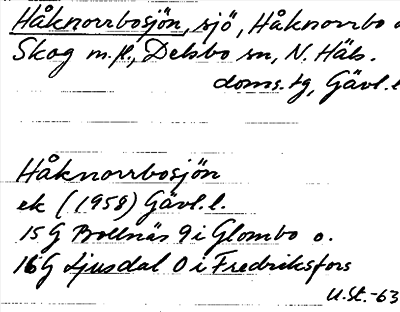 Håknorrbosjön, sjö, Håknorrbo o
Skog m.fl., Delsbo sn, N. Häls.
doms.tg, Gävl.l
Håknorrbosjön
ek (1958) Gävl.l.
15G Bollnäs 9i Glombo o.
16G Ljusdal 0i Fredriksfors
U.St.-63